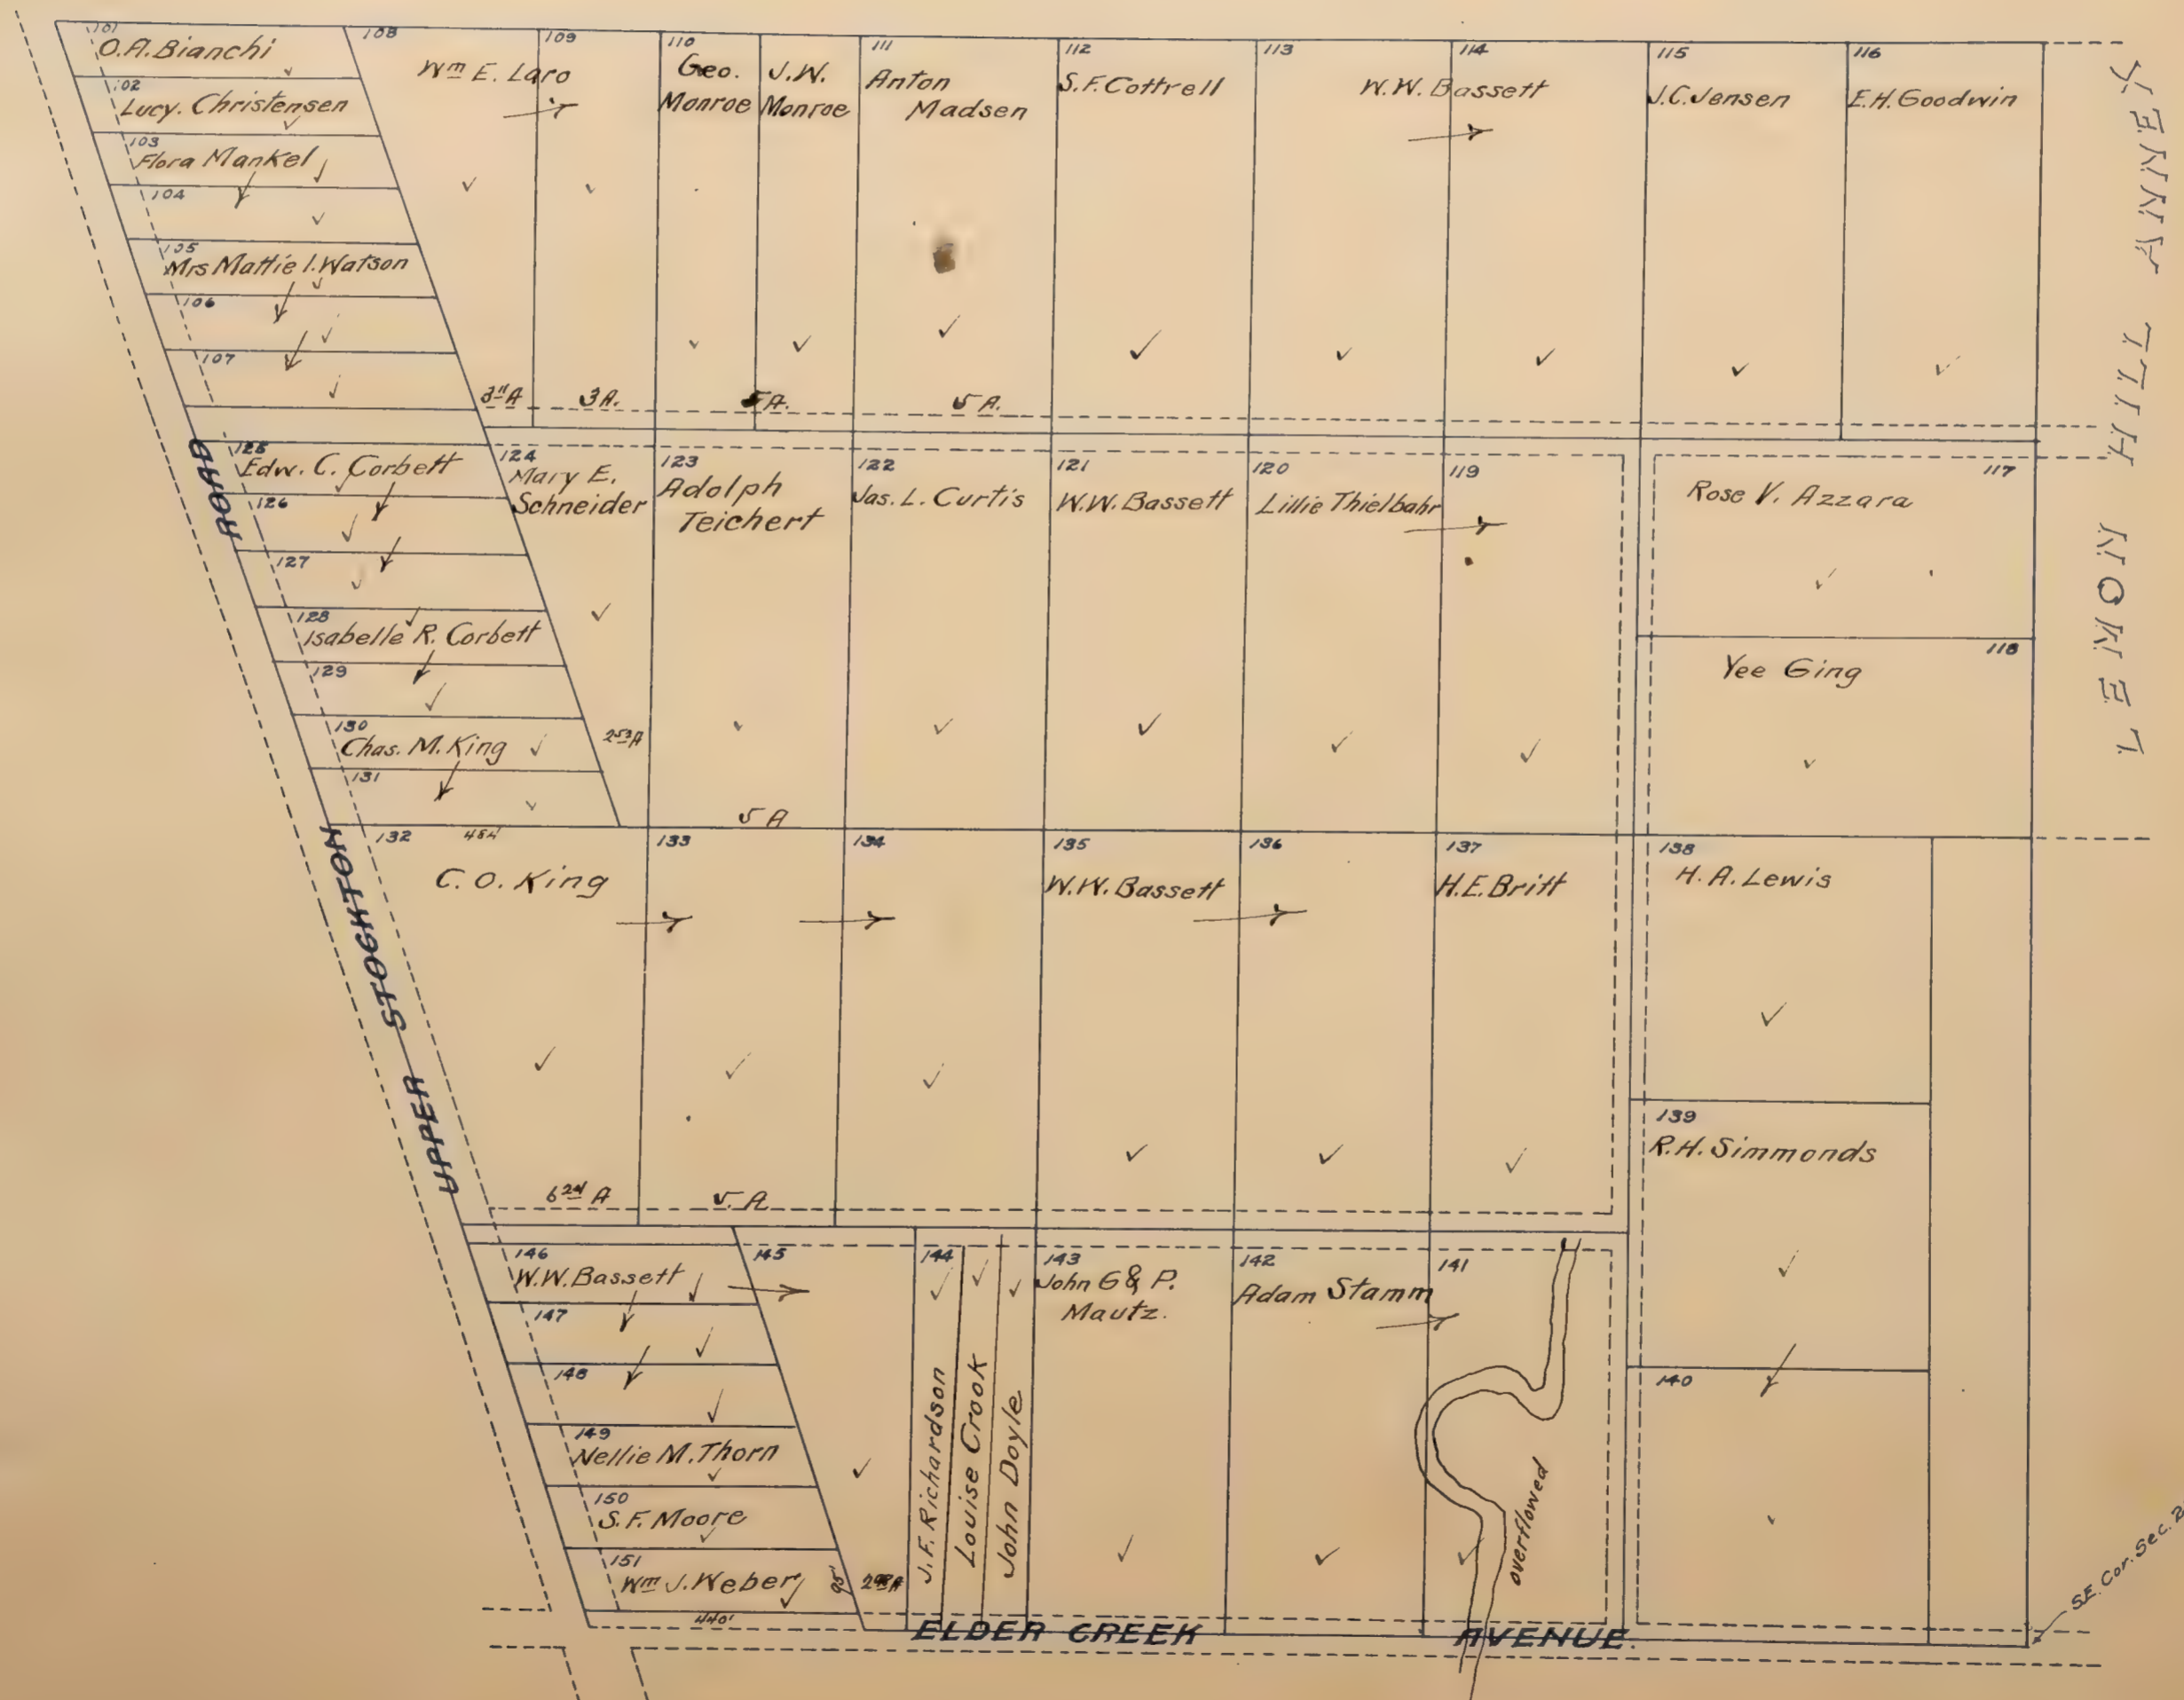 101
O.A. Bianchi
102
Lucy. Christensen
103
Flora Mankel
104
105
Mrs Mattie I. Watson
106
107
108
109
Wm E. Laro
110
Geo.
Monroe
J.W.
Monroe
111
Anton
Madsen
112
S.F. Cottrell
113
114
W.W. Bassett
115
J.C. Jensen
116
E.H. Goodwin
3A.
5 A.
LEMON HILL ANNEX
125
Edw. C. Corbett
126
127
128
Isabelle R. Corbett
129
130
Chas. M. King
131
124
Mary E.
Schneider
123
Adolph
Teichert
122
Jas. L. Curtis
121
W.W. Bassett
120
Lillie Thielbahr
119
117
Rose V. Azzara
118
Yee Ging
2 53 A
5 A
132
484'
C. O. King
133
134
135
W.W. Bassett
136
137
H.E. Britt
138
H. A. Lewis
139
R.H. Simmonds
140
5. A.
UPPER STOCKTON ROAD
146
W.W. Bassett
147
148
149
Nellie M. Thorn
150
S.F. Moore
151
Wm J. Weber
95'
440'
145
144
J.F. Richardson
Louise Crook
John Doyle
143
John G & P.
Mautz.
142
Adam Stamm
141
overflowed
ELDER CREEK AVENUE.
S.E. Cor. Sec.